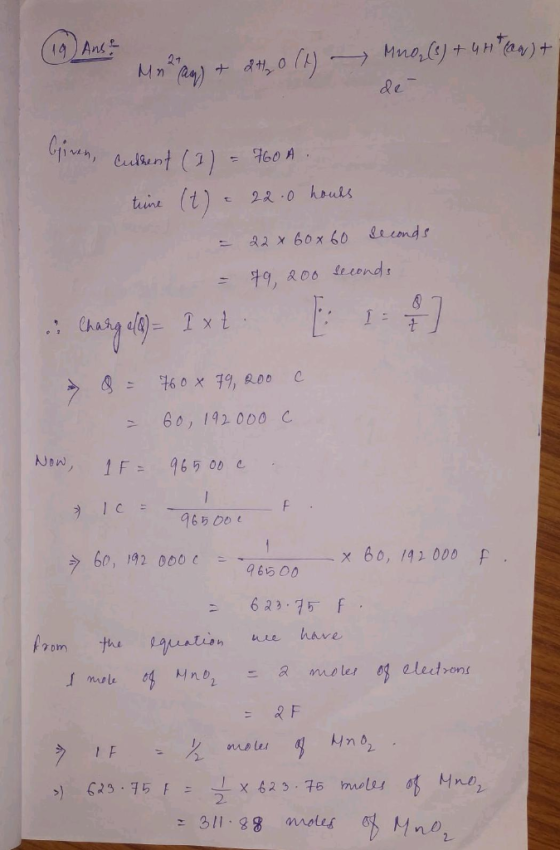 (19) Ans:-
Mn²⁺(aq) + 2H₂O (l) ⟶ MnO₂(s) + 4H⁺(aq) +
2e⁻
Given, current (I) = 760 A.
time (t) = 22.0 hours
= 22 x 60 x 60 seconds
= 79, 200 seconds
∴ Charge(Q) = I x t. [∵ I = Q/t]
⇒ Q = 760 x 79, 200 C
= 60, 192 000 C
Now, 1 F = 965 00 c
⇒ 1 C = 1/96500c F.
⇒ 60, 192 000 c = 1/96500 x 60, 192 000 F.
= 623.75 F.
From the equation we have
1 mole of MnO₂ = 2 moles of electrons
= 2F
⇒ 1F = 1/2 moles of MnO₂.
⇒ 623.75 F = 1/2 x 623.75 moles of MnO₂
= 311.88 moles of MnO₂